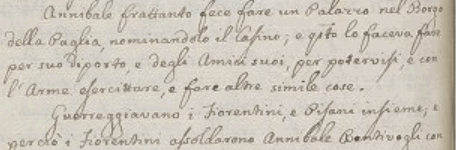 Annibale frattanto fece fare un Palazzo nel Borgo
della Paglia, nominandolo il Casino; e qsto lo faceva fare
per suo diporto, e degli Amici suoi, per potervisi, e con
l'Arme esercitare, e fare altre simile cose.
Guerreggiavano i Fiorentini, e Pisani insieme, e
perciò i Fiorentini assoldarono Annibale Bentivogli con